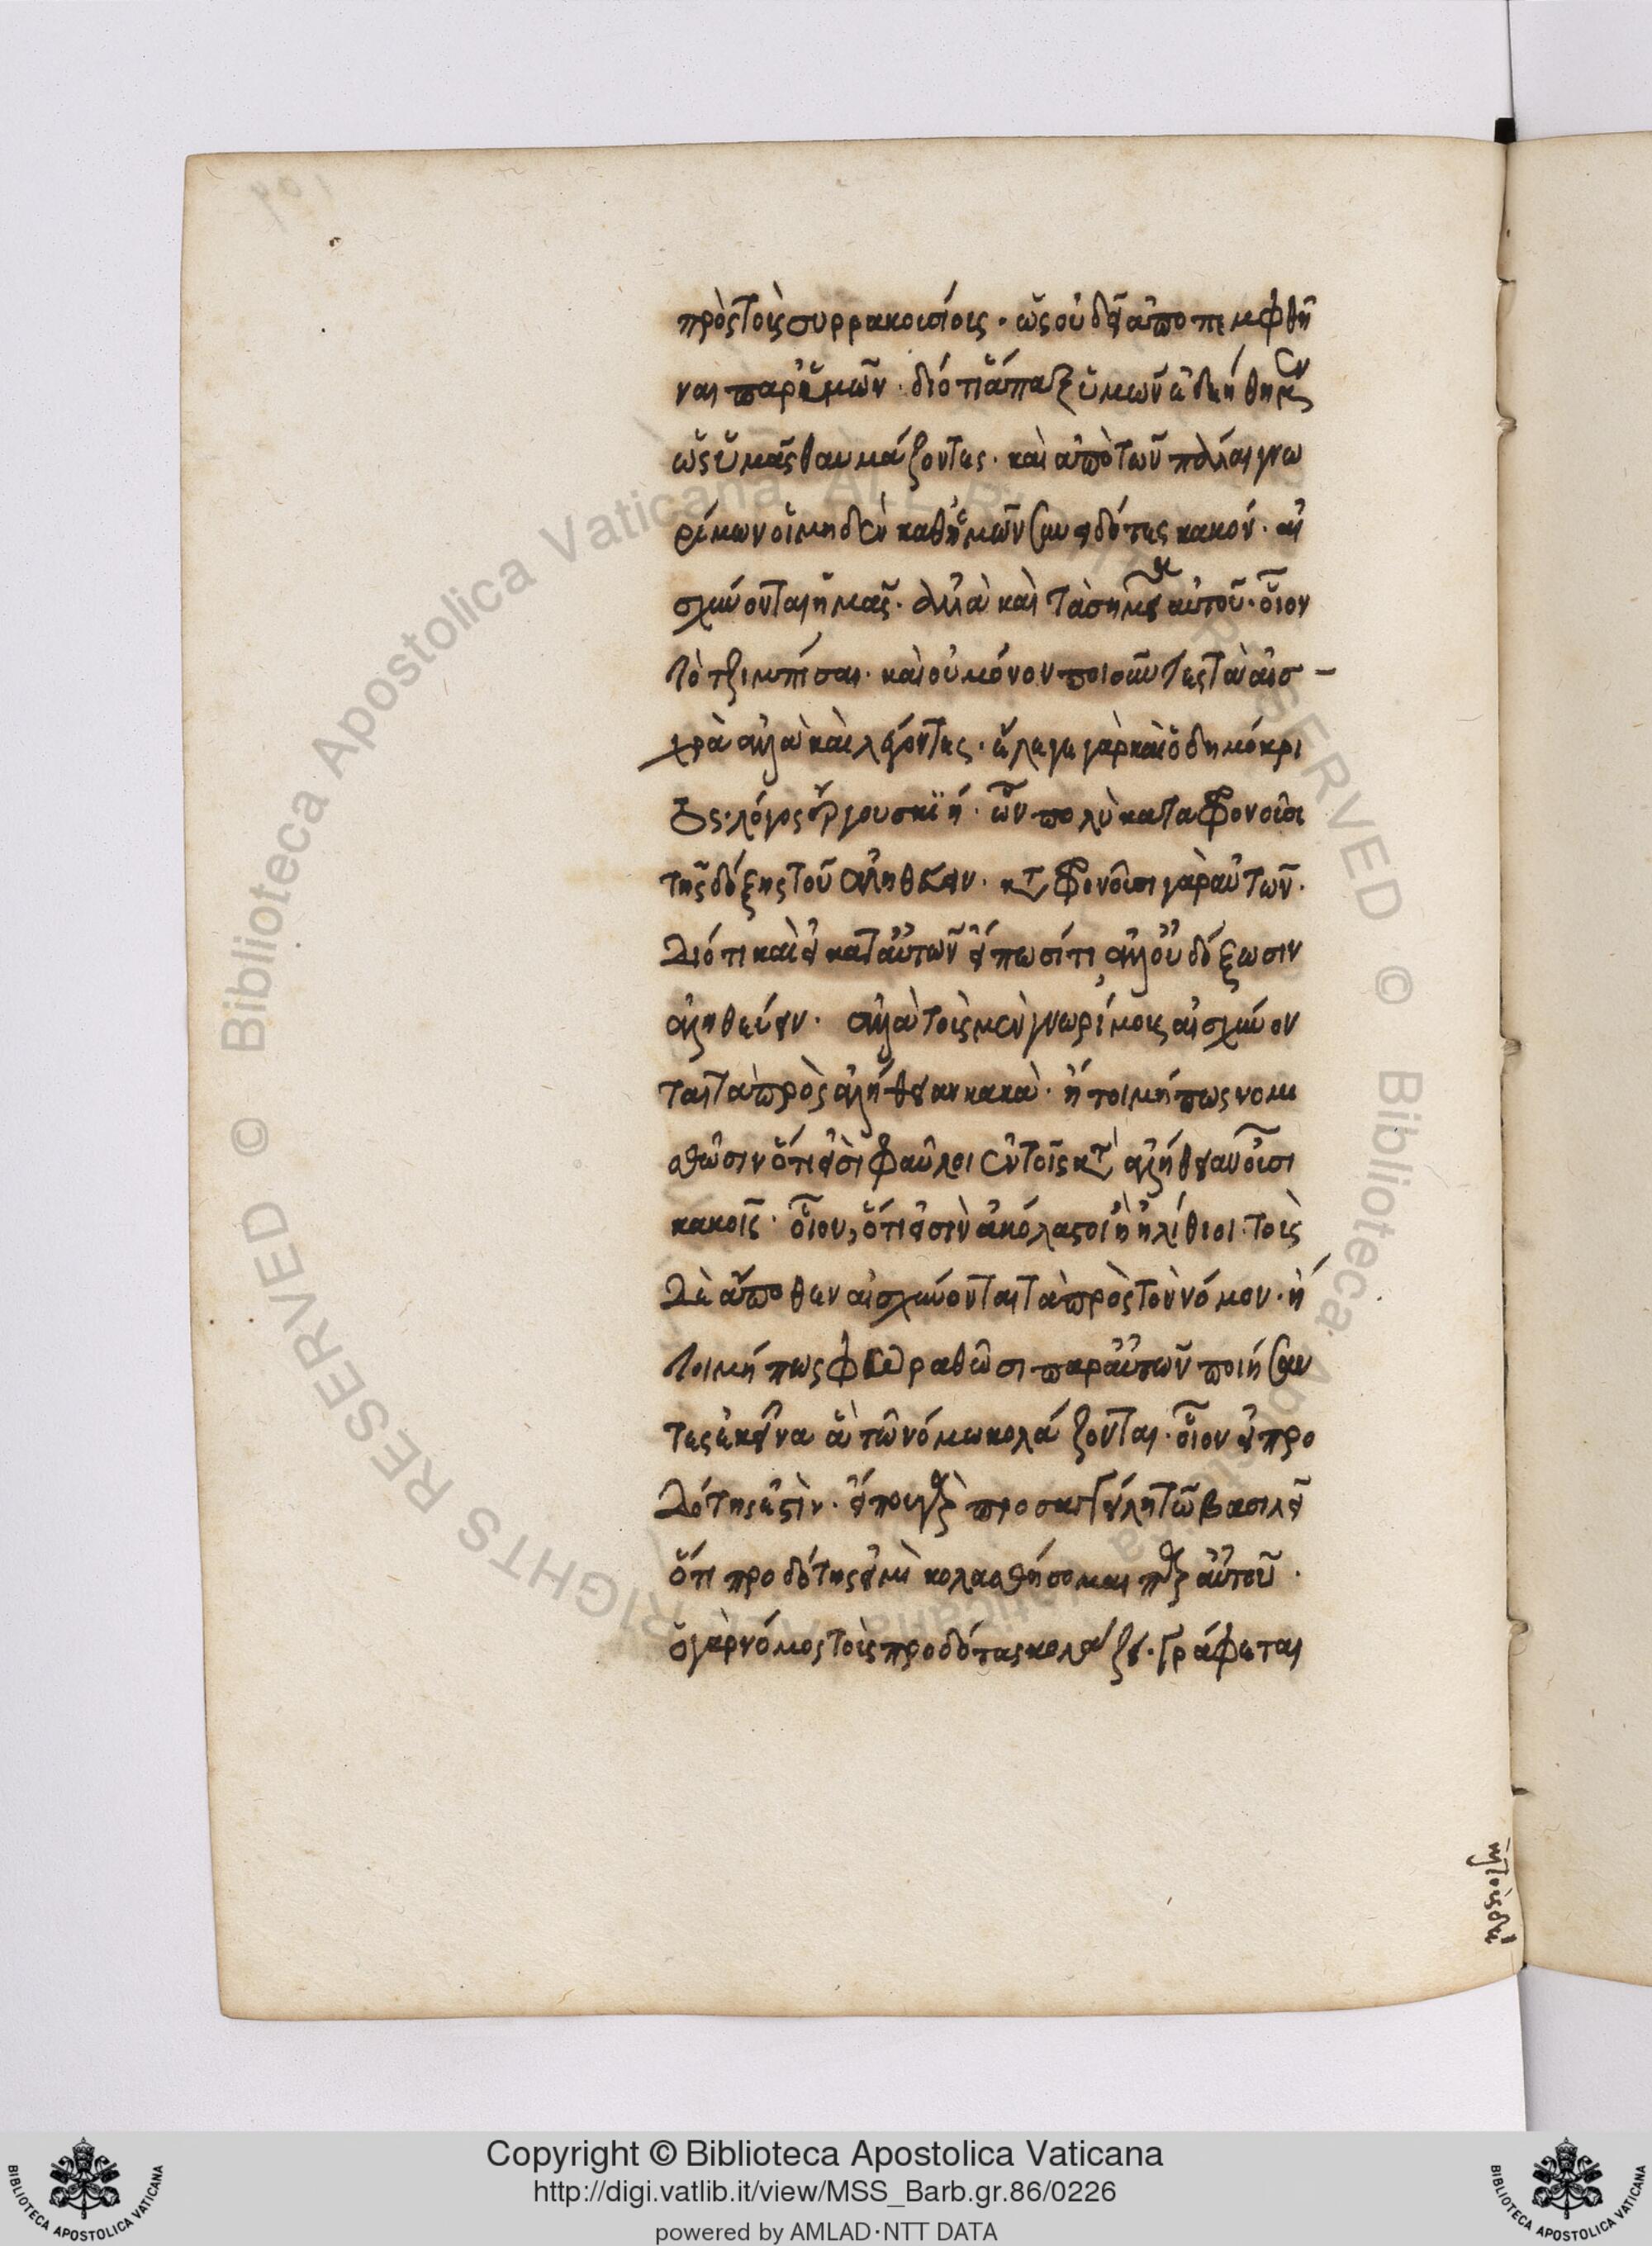 πρὸς τοὺς συρρακουσίους · ὡς οὐ δεῖ ἀποπεμφθῆ
ναι παρ ὑμῶν · διότι ἅπαξ ὑμῶν ἐδεήθημεν
ὡς ὑμᾶς θαυμάζοντες · καὶ ἀπὸ τῶν πάλαι γνω
ρίμων οἳ μηδὲν καθ ἡμῶν συνειδότες κακόν · αἰ
σχύνονται ἡμᾶς · ἀλλὰ καὶ τὰ σημεῖα αὐτοῦ · οἷον
τὸ τζιμπίσαι · καὶ οὐ μόνον ποιοῦντες τὰ αἰσ
χρὰ ἀλλὰ καὶ λέγοντες · ἔλεγε γὰρ καὶ ὁ δημόκρι
τος · λόγος ἔργου σκιή · ὧν πολὺ καταφρονοῦσι
τῆς δόξης τοῦ ἀληθεύειν · καταφρονοῦσι γὰρ αὐτῶν ·
διότι καὶ εἰ κατ αὐτῶν εἴπωσί τι ἀλλ οὐ δόξωσιν
ἀληθεύειν · ἀλλὰ τοὺς μὲν γνωρίμους αἰσχύνον
ται τὰ πρὸς ἀλήθειαν κακὰ · ἤτοι μήπως νομι
σθῶσιν ὅτι εἰσὶ φαῦλοι ἐν τοῖς κατ ἀλήθειαν οὖσι
κακοῖς · οἷον, ὅτι εἰσὶν ἀκόλαστοι ἢ ἠλίθιοι · τοὺς
δὲ ἄποθεν αἰσχύνονται τὰ πρὸς τὸν νόμον · ἤ
τοι μήπως φωραθῶσι παρ αὐτῶν ποιήσαν
τες ἐκεῖνα ἃ τῶ νόμω κολάζονται · οἷον εἰ προ
δότης ἐστὶν ·
ὅτι προδότης εἰμὶ κολασθήσομαι παρ αὐτοῦ ·
ὁ γὰρ νόμος τοὺς προδότας κολάζει · γράφεται
Copyright © Biblioteca Apostolica Vaticana
http://digi.vatlib.it/view/MSS_Barb.gr.86/0226
powered by AMLAD·NTT DATA